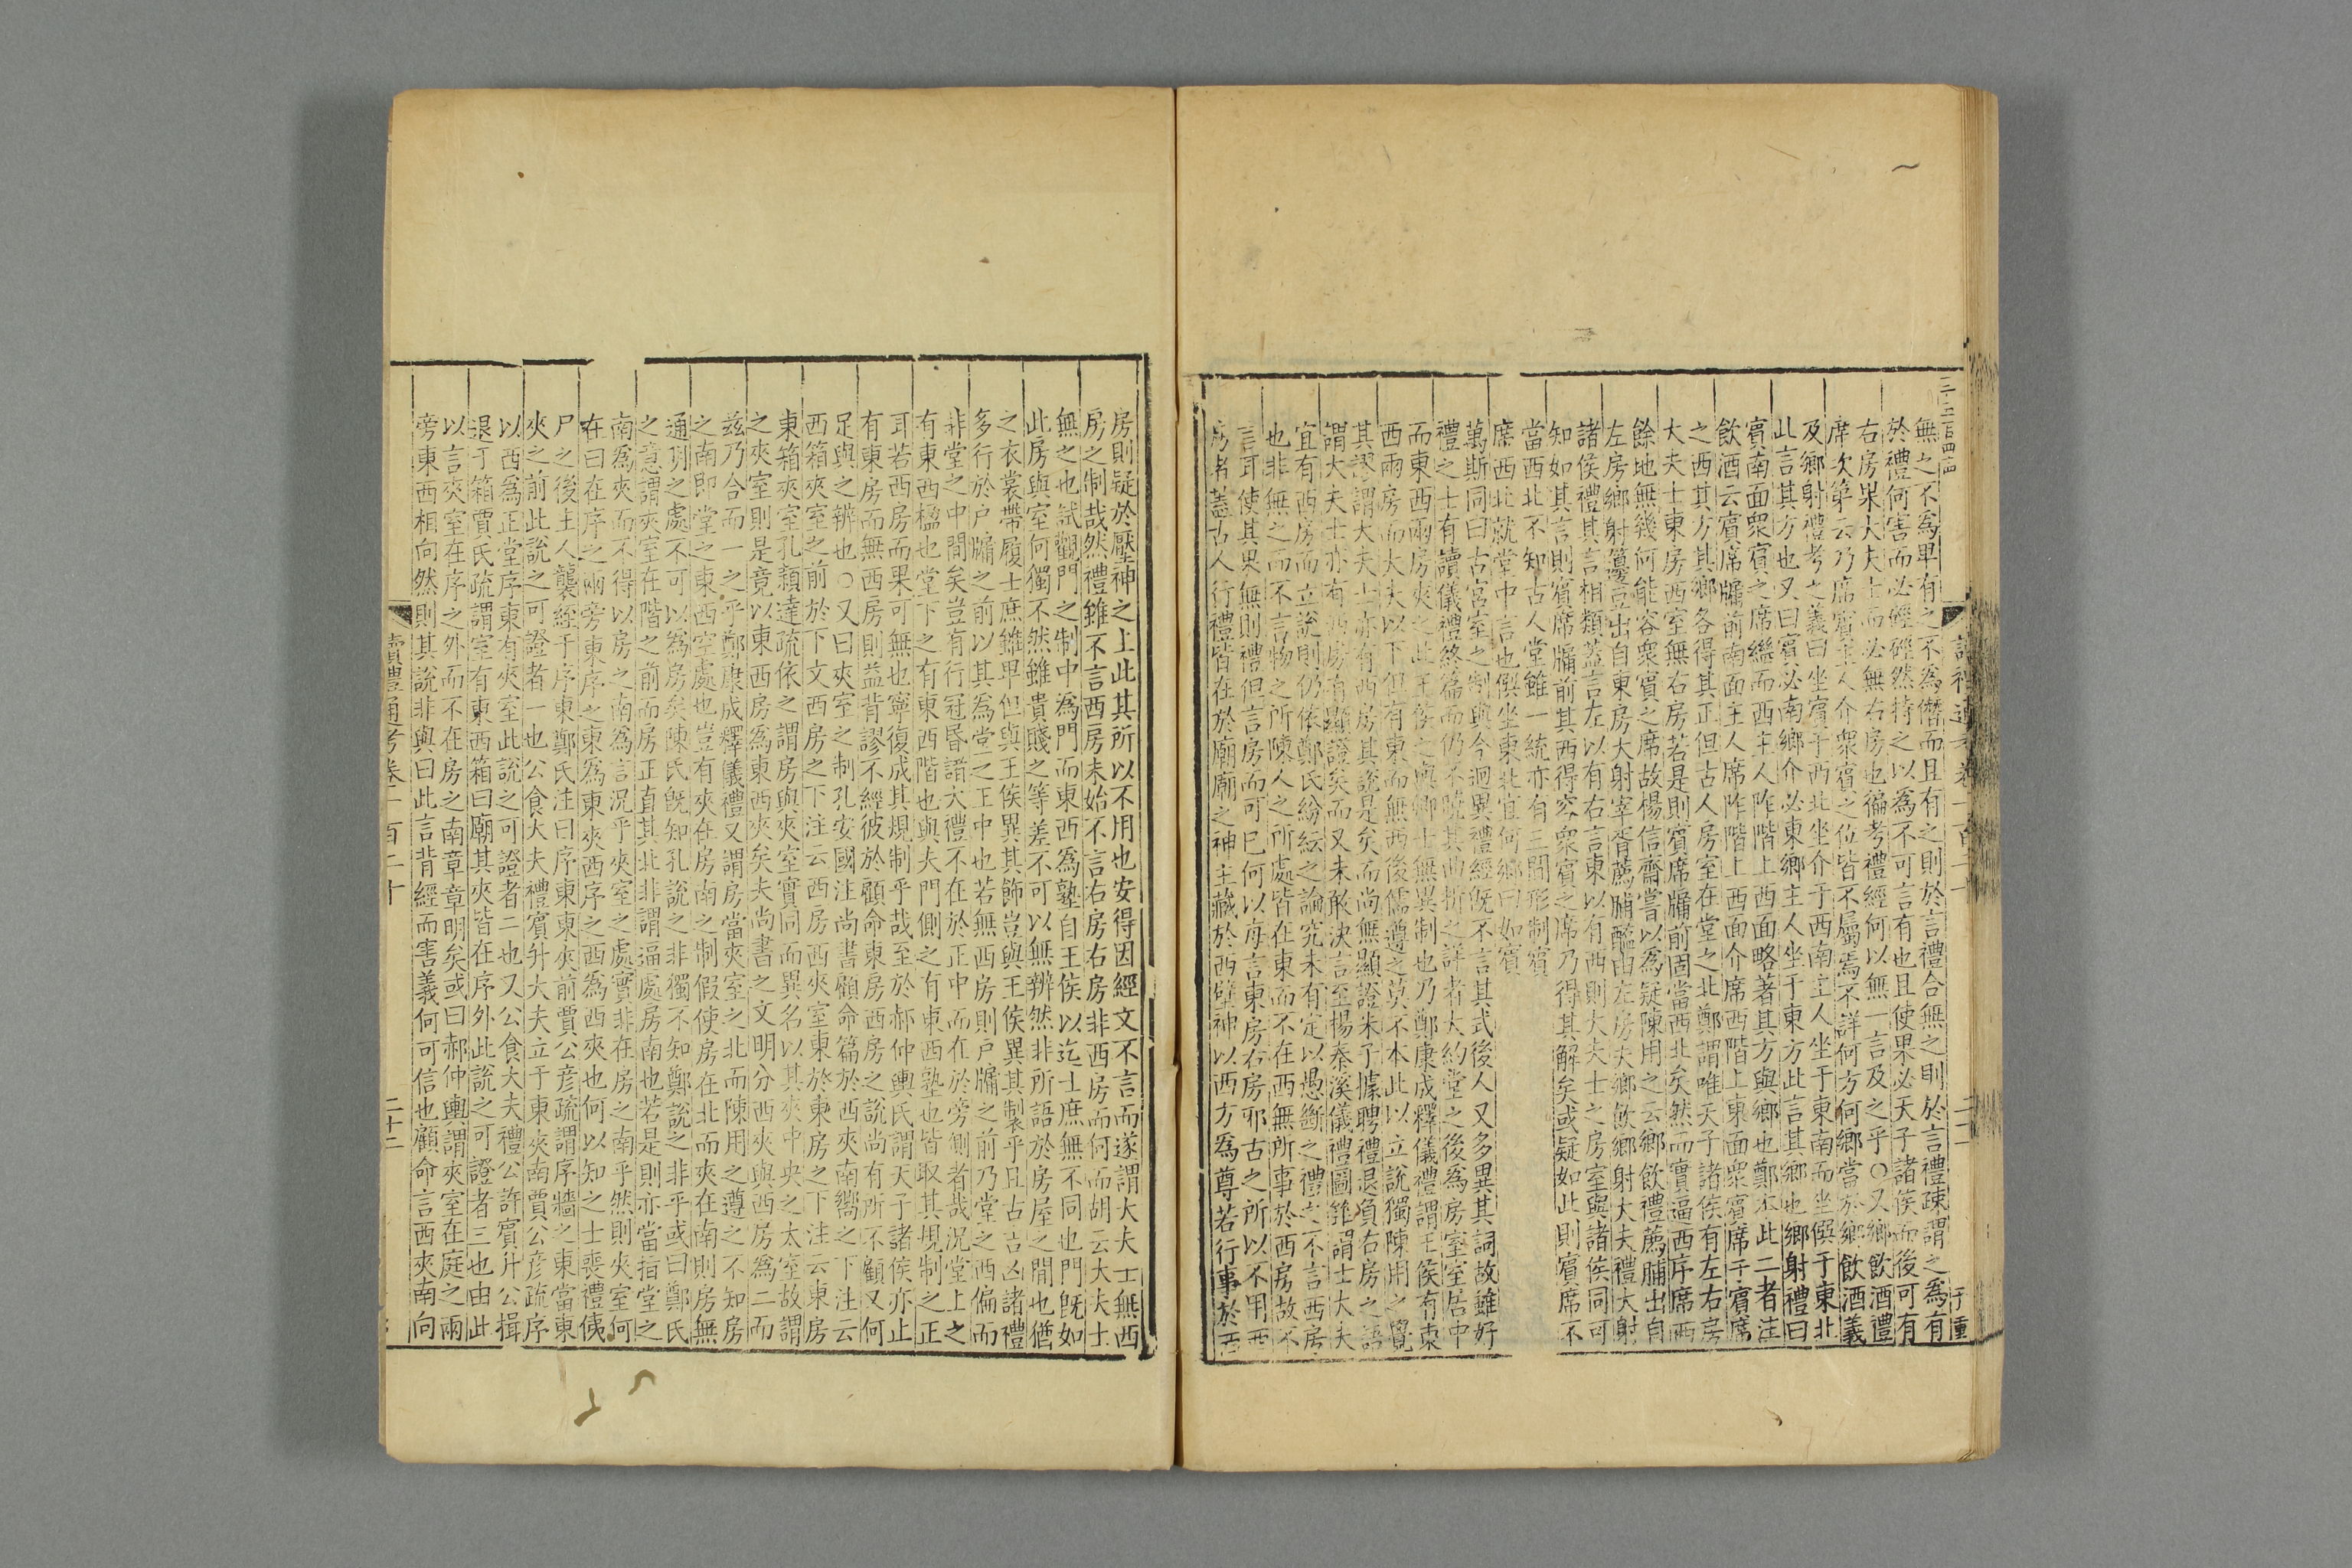 無之不爲卑有之不爲僭而且有之則於言禮合無之則於言禮疎謂之爲有
於禮何害而必硜硜然持之以爲不可言有也且使果必天子諸侯而後可有
右房果大夫士而必無右房也徧考禮經何以無一言及之乎○又鄉飲酒禮
席次第云乃席賓主人介衆賓之位皆不屬焉不詳何方何鄉當於鄉飲酒義
及鄉射禮考之義曰坐賓于西北坐介于西南主人坐于東南而坐僎于東北
此言其方也又曰賓必南鄉介必東鄉主人坐于東方此言其鄉也鄉射禮曰
賓南面衆賓之席繼而西主人阼階上西面略著其方與鄉也鄭本此二者注
飲酒云賓席牖前南面主人席阼階上西面介席西階上東面衆賓席于賓席
之西其方其鄉各得其正但古人房室在堂之北鄭謂唯天子諸侯有左右房
大夫士東房西室無右房若是則賓席牖前固當西北矣然而實逼西序席西
餘地無幾何能容衆賓之席故楊信齋嘗以爲疑陳用之云鄉飲禮薦脯出自
左房鄉射籩豆出自東房大射宰胥薦脯醢由左房夫鄉飲鄉射大夫禮大射
諸侯禮其言相類蓋言左以有右言東以有西則大夫士之房室與諸侯同可
知如其言則賓席牖前其西得容衆賓之席乃得其解矣或疑如此則賓席不
當西北不知古人堂雖一統亦有三間形制賓
席西北就堂中言也僎坐東北宜何鄉曰如賓
萬斯同曰古宮室之制與今迥異禮經既不言其式後人又多異其詞故雖好
禮之士有讀儀禮終篇而仍不曉其曲折之詳者大約堂之後爲房室室居中
而東西兩房夾之此王侯之與卿士無異制也乃鄭康成釋儀禮謂王侯有東
西兩房而大夫以下但有東而無西後儒遵之莫不本此以立說獨陳用之覺
其謬謂大夫士亦有西房其說是矣而尚無顯證朱子據聘禮退負右房之語
謂大夫士亦有西房有顯證矣而又未敢決言至楊秦溪儀禮圖雖謂士大夫
宜有西房而立說則仍依鄭氏紛紜之論究未有定以愚斷之禮之不言西房
也非無之而不言物之所陳人之所處皆在東而不在西無所事於西房故不
言耳使其果無則禮但言房而可已何以每言東房右房邪古之所以不用西
房者蓋古人行禮皆在於廟廟之神主藏於西壁神以西方爲尊若行事於西
房則疑於壓神之上此其所以不用也安得因經文不言而遂謂大夫士無西
房之制哉然禮雖不言西房未始不言右房右房非西房而何而胡云大夫士
無之也試觀門之制中爲門而東西爲塾自王侯以迄士庶無不同也門既如
此房與室何獨不然雖貴賤之等差不可以無辨然非所語於房屋之間也猶
之衣裳帶履士庶雖卑但與王侯異其飾豈與王侯異其製乎且古吉凶諸禮
多行於戶牖之前以其爲堂之正中也若無西房則戶牖之前乃堂之西偏而
非堂之中間矣豈有行冠昏諸大禮不在於正中而在於旁側者哉況堂上之
有東西楹也堂下之有東西階也與夫門側之有東西塾也皆取其規制之正
耳若西房而果可無也寧復成其規制乎哉至於郝仲輿氏謂天子諸侯亦止
有東房而無西房則益背謬不經彼於顧命東房西房之說尚有所不顧又何
足與之辨也○又曰夾室之制孔安國注尚書顧命篇於西夾南嚮之下注云
西箱夾室之前於下文西房之下注云西房西夾室東於東房之下注云東房
東箱夾室孔穎達疏依之謂房與夾室實同而異名以其夾中央之太室故謂
之夾室則是竟以東西房爲東西夾矣夫尚書之文明分西夾與西房爲二而
兹乃合而一之乎鄭康成釋儀禮又謂房當夾室之北而陳用之遵之不知房
之南即堂之東西空處也豈有夾在房南之制假使房在北而夾在南則房無
通明之處不可以爲房矣陳氏既知孔說之非獨不知鄭說之非乎或曰鄭氏
之意謂夾室在階之前而房正直其北非謂逼處房南也若是則亦當指堂之
南爲夾而不得以房之南爲言況乎夾室之處實非在房之南乎然則夾室何
在曰在序之兩旁東序之東爲東夾西序之西爲西夾也何以知之士喪禮侇
尸之後主人襲絰于序東鄭氏注曰序東東夾前賈公彦疏謂序牆之東當東
夾之前此說之可證者一也公食大夫禮賓升大夫立于東夾南賈公彦疏序
以西爲正堂序東有夾室此說之可證者二也又公食大夫禮公許賓升公揖
退于箱賈氏疏謂室有東西箱曰廟其夾皆在序外此說之可證者三也由此
以言夾室在序之外而不在房之南章章明矣或曰郝仲輿謂夾室在庭之兩
旁東西相向然則其說非與曰此言背經而害義何可信也顧命言西夾南向
讀禮通考卷一百二十
二十二